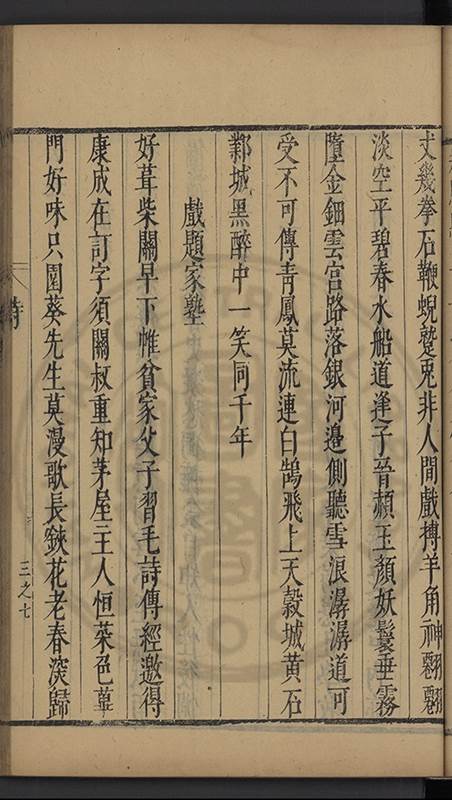 丈幾拳石鞭蜺蹵兎非人間戲摶羊角神翾翾
淡空平碧春水船道逢子晉頳玉顔妖鬟垂霧
墮金鈿雲宮路落銀河邊側聽雪浪潺潺道可
受不可傳青鳳莫流連白鵠飛上天穀城黄石
鄴城黒醉中一笑同千年
戲題家塾
好葺柴關早下帷貧家父子習毛詩傳經邀得
康成在訂字須關叔重知茅屋主人恒菜色蓽
門好味只園葵先生莫漫歌長鋏花老春深歸
詩
三之七